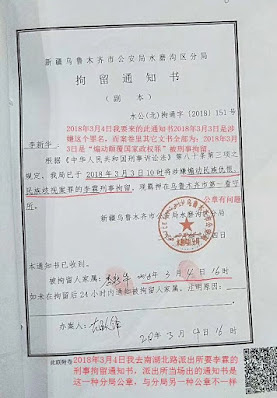 新疆乌鲁木齐市公安局水磨沟区分局
拘留通知书
（副本）
水公( )拘通字〔2018〕151号
2018年3月4日我要来的此通知书2018年3月3日是涉
李新华： 嫌这个罪名，而案卷里其它文书全部为：2018年
3月3日是“煽动颠覆国家政权罪”被刑事拘留。
根据《中华人民共和国刑事诉讼法》第八十条第三项之
规定，我局已于2018年3月3日10时将涉嫌煽动民族仇恨、
民族歧视案罪的李霖刑事拘留，现羁押在乌鲁木齐市第一看守
所。
公章有问题
新疆乌鲁木齐市公安局水磨沟区分局
本通知书已收到。
被拘留人家属： 年3月4日16时
如未在拘留后24小时内通知被拘留人家属，注明原因：
办案人：
20 年3月4日16时
此联附卷
2018年3月4日我去南湖北路派出所要李霖的
刑事拘留的通知书，派出所当场出的通知书是
这一种分局公章，与分局另一种公章不一样